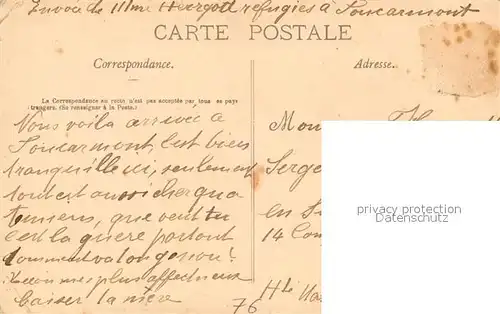 Envoie de Mme Hergott refugiés à Foucarmont
CARTE POSTALE
Correspondance.
Adresse.
La Correspondance au recto n'est pas acceptée par tous les pays
étrangers. (Se renseigner à la Poste.)
Nous voila arrivée à
Foucarmont, c'est bien
tranquille ici, seulement
tout est aussi cher qua
que veut tu
c'est la guère partout
comment va
mes plus affectueux
baiser ta mère
Mon
Serge
en
14 Con
Hte
76
privacy protection
Datenschutz